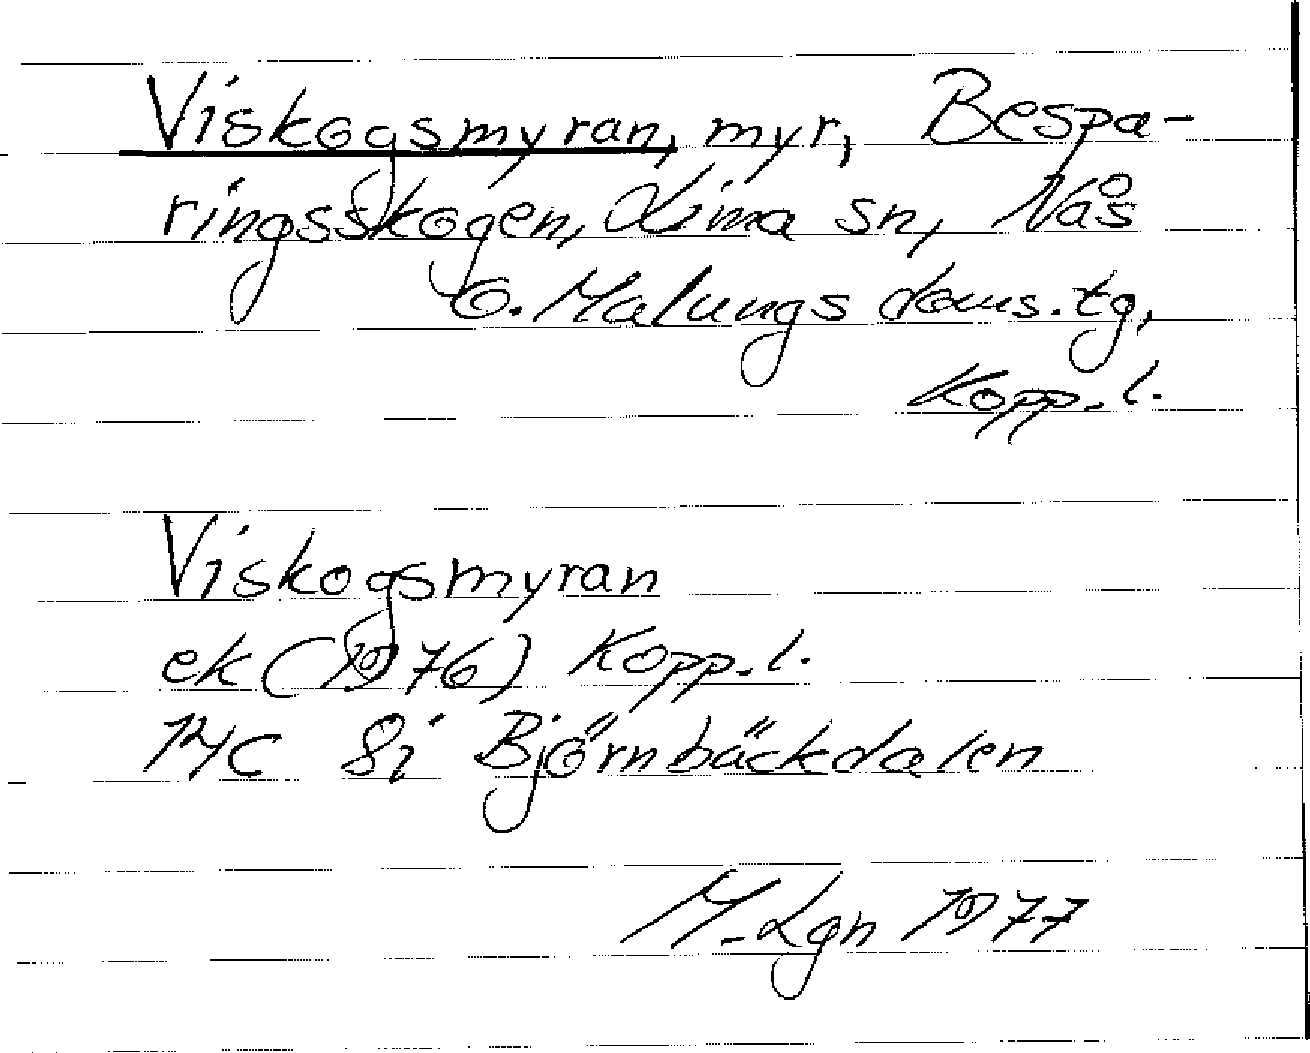 Viskogsmyran, myr, Bespa-
ringsskogen, Lima sn, Nås
o. Malungs doms.tg,
Kopp.l.
Viskogsmyran
ek (1976) Kopp.l.
14C 8i Björnbäckdalen
M. Lgn 1977